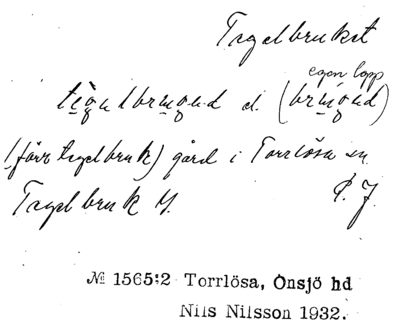 Tegelbruket
egen lapp
tègəlbrɯgəd el. (brɯgəd)
(förr tegelbruk) gård i Torrlösa sn
Tegelbruk J. P. J.
№ 1565:2 Torrlösa, Onsjö hd
Nils Nilsson 1932.